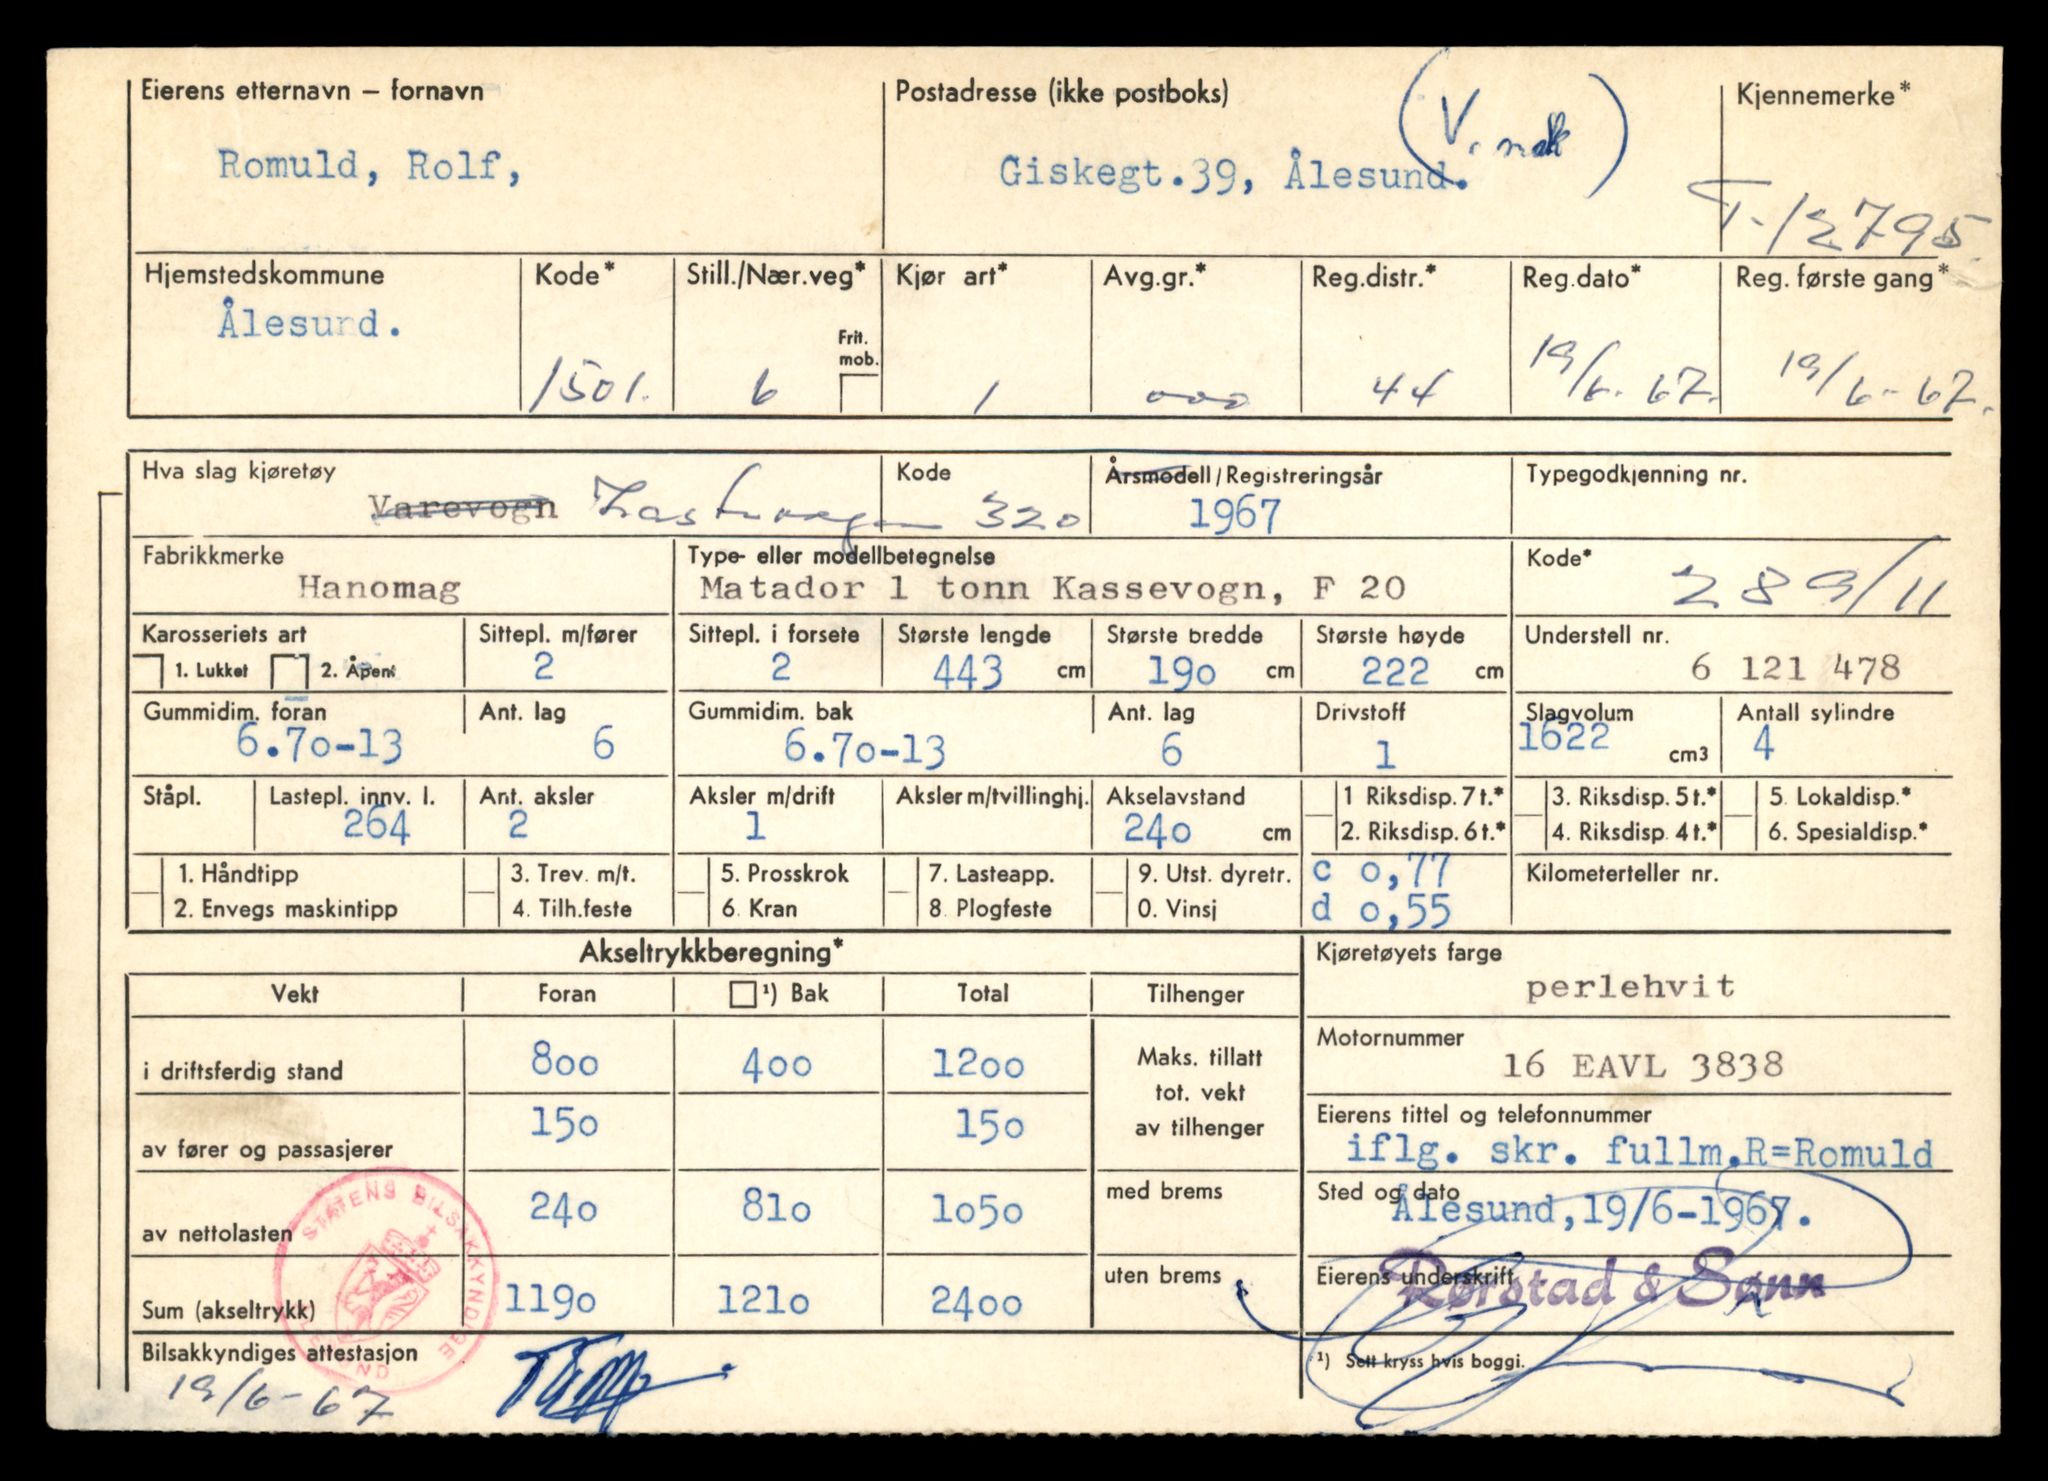 Eierens etternavn – fornavn
Romuld, Rolf,
Postadresse (ikke postboks)
Giskegt.39, Ålesund.
Kjennemerke*
T-12795
Hjemstedskommune
Ålesund.
Kode*
1501.
Still./Nær.veg*
6
Frit.
mob.
Kjør art*
1
Avg.gr.*
000
Reg.distr.*
44
Reg.dato*
19/6-67.
Reg. første gang*
19/6-67.
Hva slag kjøretøy
Varevogn Lastevogn
Kode
320
Årsmodell/Registreringsår
1967
Typegodkjenning nr.
Fabrikkmerke
Hanomag
Type- eller modellbetegnelse
Matador 1 tonn Kassevogn, F 20
Kode*
289/11
Karosseriets art
1. Lukket 2. Åpent
Sittepl. m/fører
2
Sittepl. i forsete
2
Største lengde
443 cm
Største bredde
190 cm
Største høyde
222 cm
Understell nr.
6 121 478
Gummidim. foran
6.70-13
Ant. lag
6
Gummidim. bak
6.70-13
Ant. lag
6
Drivstoff
1
Slagvolum
1622 cm3
Antall sylindre
4
Ståpl.
Lastepl. innv. l.
264
Ant. aksler
2
Aksler m/drift
1
Aksler m/tvillinghj.
Akselavstand
240 cm
1 Riksdisp. 7 t.*
2. Riksdisp. 6 t.*
3. Riksdisp. 5 t.*
4. Riksdisp. 4 t.*
5. Lokaldisp.*
6. Spesialdisp.*
1. Håndtipp
2. Envegs maskintipp
3. Trev. m/t.
4. Tilh.feste
5. Prosskrok
6. Kran
7. Lasteapp.
8. Plogfeste
9. Utst. dyretr.
0. Vinsj
c 0,77
d 0,55
Kilometerteller nr.
Akseltrykkberegning*
Vekt Foran ¹) Bak Total Tilhenger
i driftsferdig stand 800 400 1200
av fører og passasjerer 150 150
av nettolasten 240 810 1050
Sum (akseltrykk) 1190 1210 2400
Maks. tillatt
tot. vekt
av tilhenger
med brems
uten brems
Kjøretøyets farge
perlehvit
Motornummer
16 EAVL 3838
Eierens tittel og telefonnummer
iflg. skr. fullm.R=Romuld
Sted og dato
Ålesund,19/6-1967.
Eierens underskrift
Rørstad & Sønn
¹) Sett kryss hvis boggi.
Bilsakkyndiges attestasjon
19/6-67
STATENS BILSAKKYNDIGE
ÅLESUND